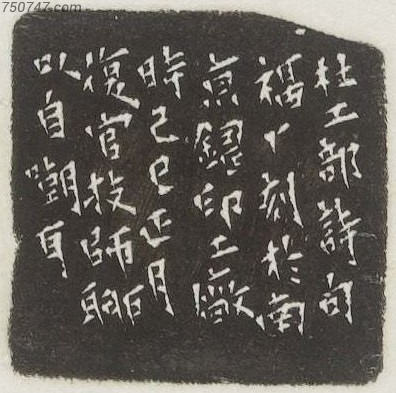 750747.com
杜工部詩句
福厂刻於南
京鑄印工廠
時己巳正月
復官技師聊
以自嘲耳